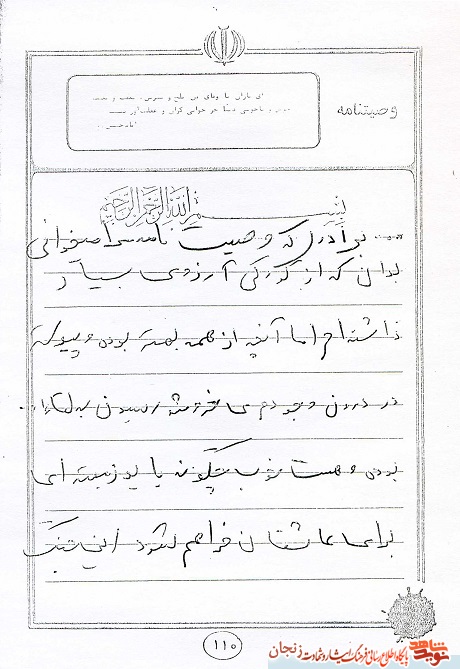 وصیتنامه
ای یاران با وفای من
بسم الله الرحمن الرحیم
برادرم که وصیت نامه مرا میخوانی
بدان که از کودکی آرزوی بسیار
داشته ام اما آنچه از همه بهتر بوده و پیوسته
در درون وجودم می خروشد رسیدن به الله ...
بوده و هست خوب چگونه باید زمینه ای
برای عاشقان فراهم شود این جنگ
۱۱۰
نوید شاهد
پایگاه اطلاع رسانی فرهنگ ایثار و شهادت زنجان